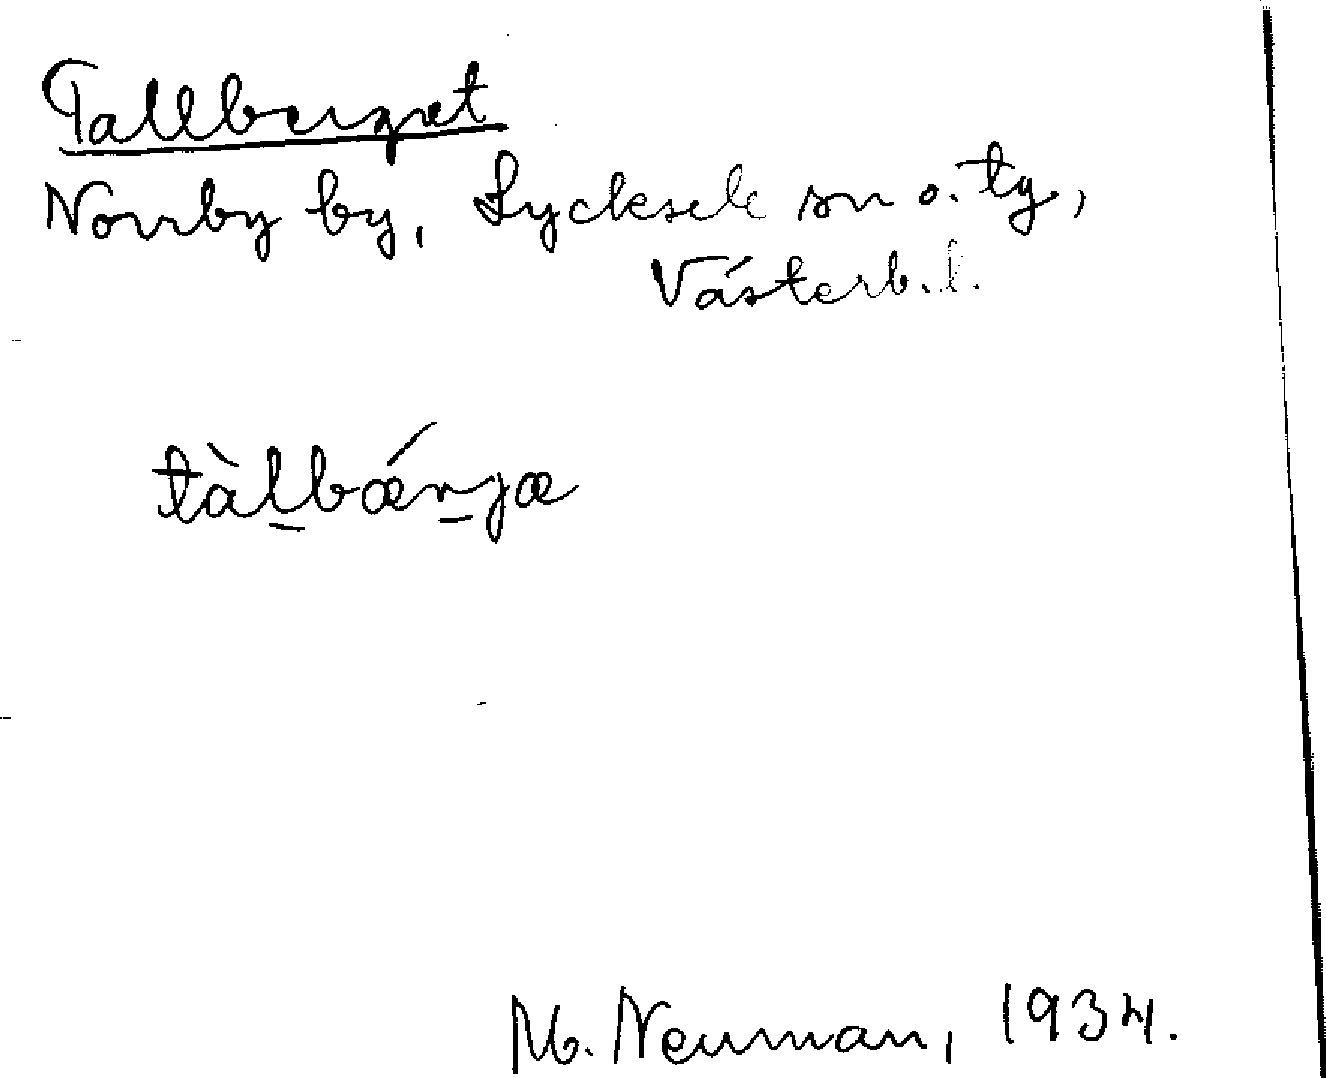 Tallberget
Norrby by, Lycksele sn o. tg,
Västerb. l.
tàl̲bǽr̲jæ
M. Neuman, 1934.